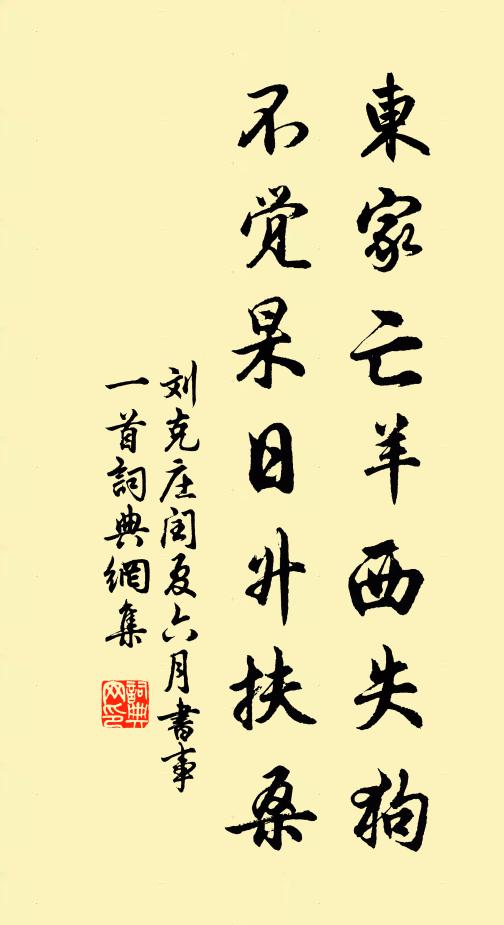 東家亡羊西失狗
不觉杲日升扶桑
刘克庄闰夏六月書事
一首詞典網集
詞典
网印